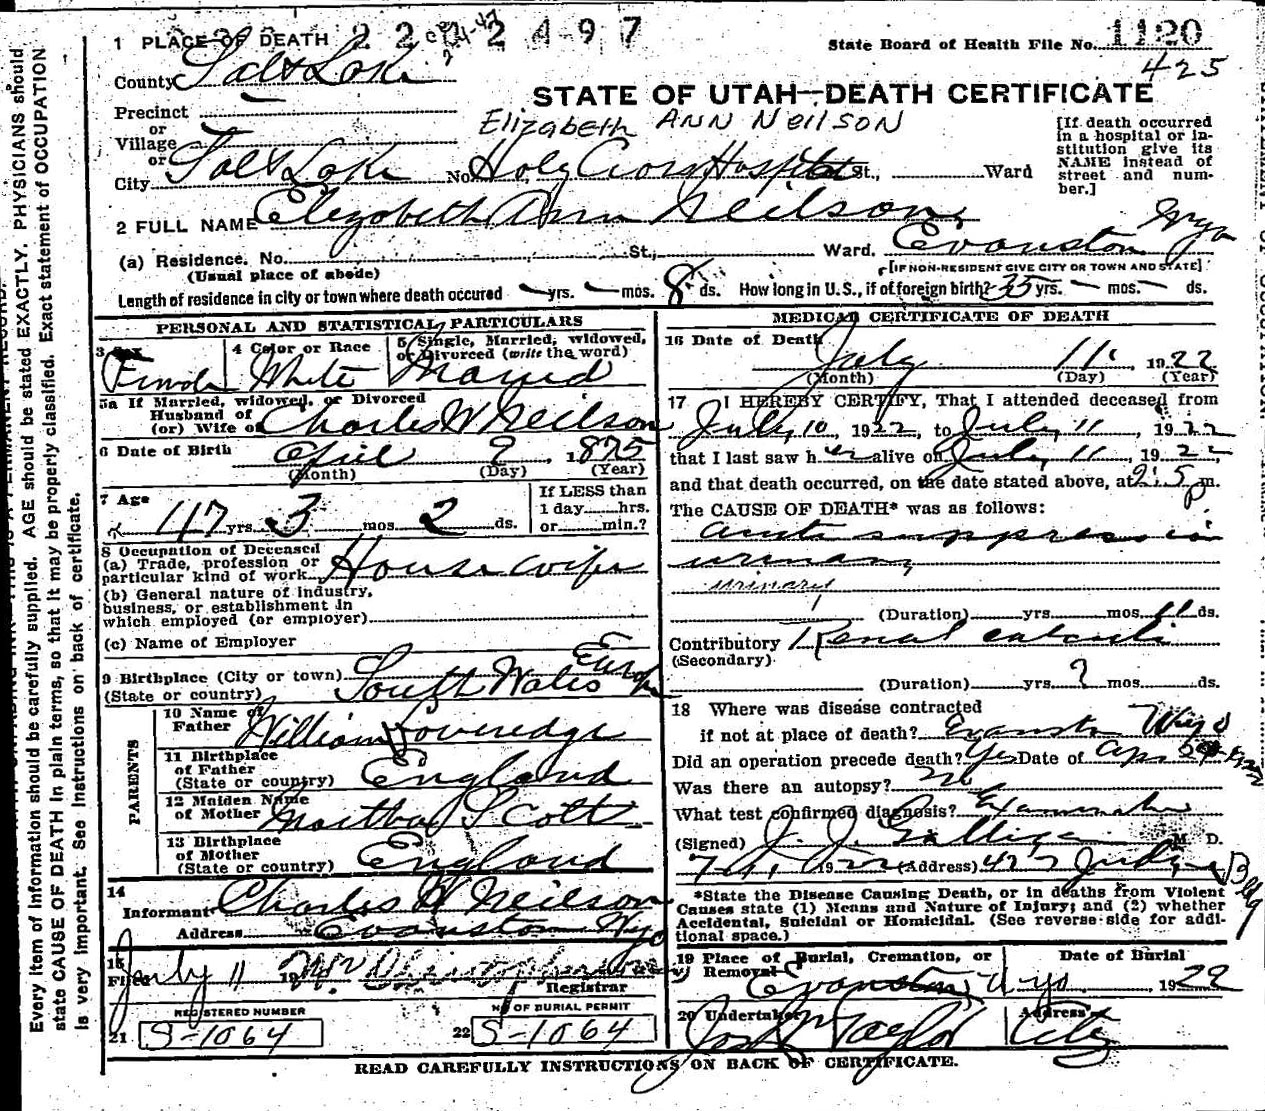 1 PLACE OF DEATH 22 2497
State Board of Health File No. 1120
425
County Salt Lake
STATE OF UTAH—DEATH CERTIFICATE
Precinct
Elizabeth ANN NEILSON
or
Village
or
City Salt Lake No. Holy Cross Hospital St., Ward
[If death occurred
in a hospital or in-
stitution give its
NAME instead of
street and num-
ber.]
2 FULL NAME Elizabeth Ann Neilson
(a) Residence. No. St., Ward. Evanston Wyo
(Usual place of abode)
[IF NON-RESIDENT GIVE CITY OR TOWN AND STATE]
Length of residence in city or town where death occured — yrs. — mos. 8 ds. How long in U.S., if of foreign birth? 35 yrs. — mos. — ds.
PERSONAL AND STATISTICAL PARTICULARS
3 Sex 4 Color or Race 5 Single, Married, widowed,
or Divorced (write the word)
White Married
5a If Married, widowed, or Divorced
Husband of
(or) Wife of Charles W Neilson
6 Date of Birth April 9 1875
(Month) (Day) (Year)
7 Age
47 yrs. 3 mos. 2 ds.
If LESS than
1 day hrs.
or min.?
8 Occupation of Deceased
(a) Trade, profession or
particular kind of work House wife
(b) General nature of industry,
business, or establishment in
which employed (or employer)
(c) Name of Employer
9 Birthplace (City or town) South Wales Europe
(State or country)
PARENTS
10 Name of
Father William Loveredge
11 Birthplace
of Father
(State or country) England
12 Maiden Name
of Mother Martha Scott
13 Birthplace
of Mother
(State or country) England
14
Informant Charles W Neilson
Address Evanston Wyo
15
Filed July 11 19
Registrar
REGISTERED NUMBER
21 S-1064
NO OF BURIAL PERMIT
22 S-1064
MEDICAL CERTIFICATE OF DEATH
16 Date of Death July 11 1922
(Month) (Day) (Year)
17 I HEREBY CERTIFY, That I attended deceased from
July 10, 1922, to July 11, 1922
that I last saw her alive on July 11, 1922,
and that death occurred, on the date stated above, at p m.
The CAUSE OF DEATH* was as follows:
suppression
urinary
urinary
(Duration) yrs. mos. 11 ds.
Contributory Renal calculi
(Secondary)
(Duration) yrs. ? mos. ds.
18 Where was disease contracted
if not at place of death? Evanston Wyo
Did an operation precede death? Yes Date of
Was there an autopsy? no
What test confirmed diagnosis? Examination
(Signed) J. J. Galligan M. D.
1922 (Address) Judge Bldg
*State the Disease Causing Death, or in deaths from Violent
Causes state (1) Means and Nature of Injury; and (2) whether
Accidental, Suicidal or Homicidal. (See reverse side for addi-
tional space.)
19 Place of Burial, Cremation, or
Removal Evanston Wyo
Date of Burial
1922
20 Undertaker Jos Wm Taylor
Address
City
READ CAREFULLY INSTRUCTIONS ON BACK OF CERTIFICATE.
Every item of information should be carefully supplied. AGE should be stated EXACTLY. PHYSICIANS should
state CAUSE OF DEATH in plain terms, so that it may be properly classified. Exact statement of OCCUPATION
is very important. See Instructions on back of certificate.